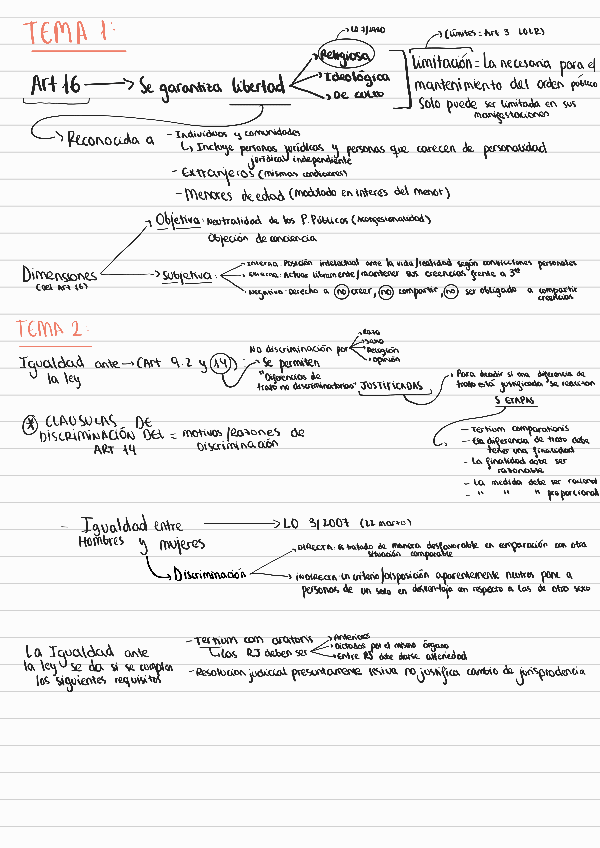 TEMA 1:
LO 7/1980
(Límites = Art 3 LOLR)
Art 16 → Se garantiza libertad
Religiosa
Ideológica
De culto
Limitación = La necesaria para el
mantenimiento del orden público
Solo puede ser limitada en sus
manifestaciones
Reconocida a
- Individuos y comunidades
↳ Incluye personas jurídicas y personas que carecen de personalidad
jurídica independiente
- Extranjeros (mismas condiciones)
- Menores de edad (modulado en interés del menor)
Dimensiones
(del Art 16)
Objetiva: Neutralidad de los P. Públicos (Aconfesionalidad)
Objeción de conciencia
Subjetiva:
Interna: Posición intelectual ante la vida/realidad según convicciones personales
Externa: Actuar libremente/mantener sus creencias frente a 3os
Negativa: Derecho a no creer, no compartir, no ser obligado a compartir
creencias
TEMA 2:
Igualdad ante → (Art 9.2 y 14)
la ley
No discriminación por
Raza
Sexo
Religión
Opinión
Se permiten
"Diferencias de
trato no discriminatorias" JUSTIFICADAS
Para decidir si una diferencia de
trato está justificada se realizan
5 ETAPAS
- Tertium comparationis
- Esa diferencia de trato debe
tener una finalidad
- La finalidad debe ser
razonable
- La medida debe ser racional
- " " " " proporcional
* CLAUSULAS DE
DISCRIMINACIÓN DEL = motivos/razones de
ART 14
Discriminación
- Igualdad entre → LO 3/2007 (22 marzo)
Hombres y mujeres
Discriminación
DIRECTA: es tratado de manera desfavorable en comparación con otra
situación comparable
INDIRECTA: un criterio/disposición aparentemente neutros pone a
personas de un sexo en desventaja en respecto a las de otro sexo
La Igualdad ante
la ley se da si se cumplen
los siguientes requisitos
- Tertium com oratoris
↳ las RJ deben ser
Anteriores
Dictadas por el mismo órgano
Entre RJ debe darse alteridad
- Resolución judicial presuntamente lesiva no justifica cambio de jurisprudencia